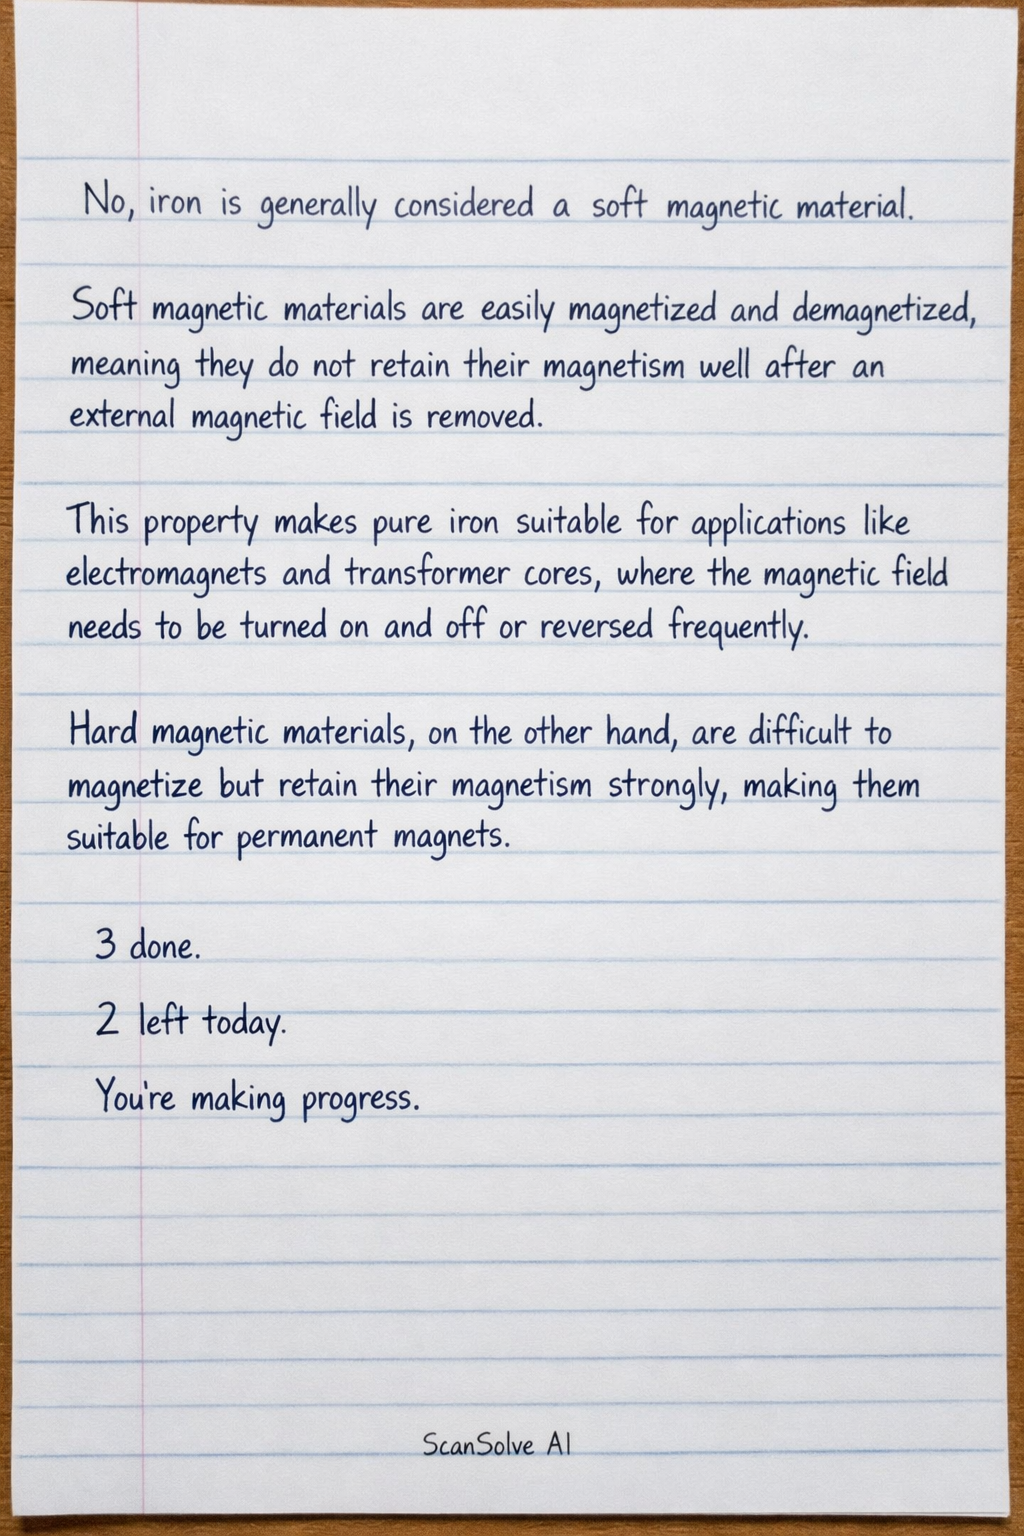 No, iron is generally considered a soft magnetic material.
Soft magnetic materials are easily magnetized and demagnetized,
meaning they do not retain their magnetism well after an
external magnetic field is removed.
This property makes pure iron suitable for applications like
electromagnets and transformer cores, where the magnetic field
needs to be turned on and off or reversed frequently.
Hard magnetic materials, on the other hand, are difficult to
magnetize but retain their magnetism strongly, making them
suitable for permanent magnets.
3 done.
2 left today.
You're making progress.
ScanSolve AI